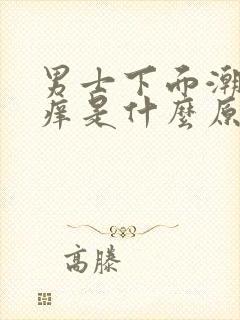 男士下面潮
痒是什麼原
高滕